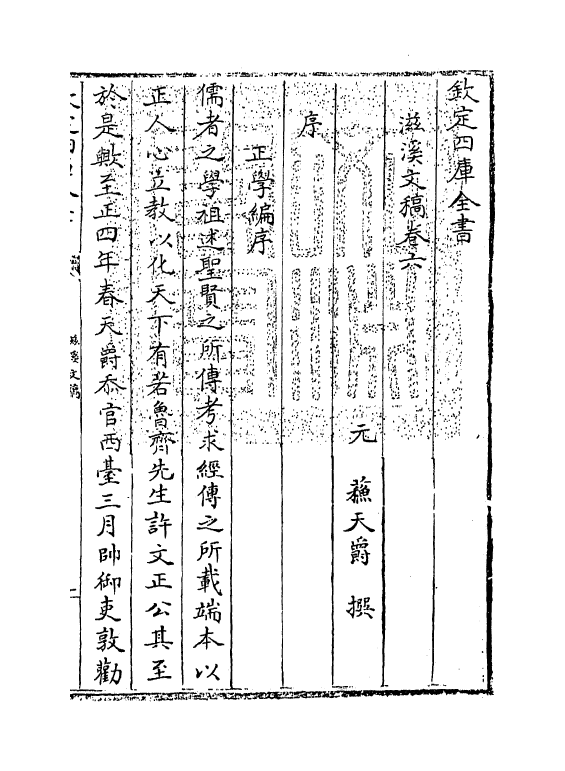 欽定四庫全書
滋溪文稿卷六
元 蘇天爵 撰
序
正學編序
儒者之學祖述聖賢之所傳考求經傳之所載端本以
正人心立教以化天下有若魯齊先生許文正公其至
於是歟至正四年春天爵忝官西臺三月帥御吏敦勸
滋溪文稿